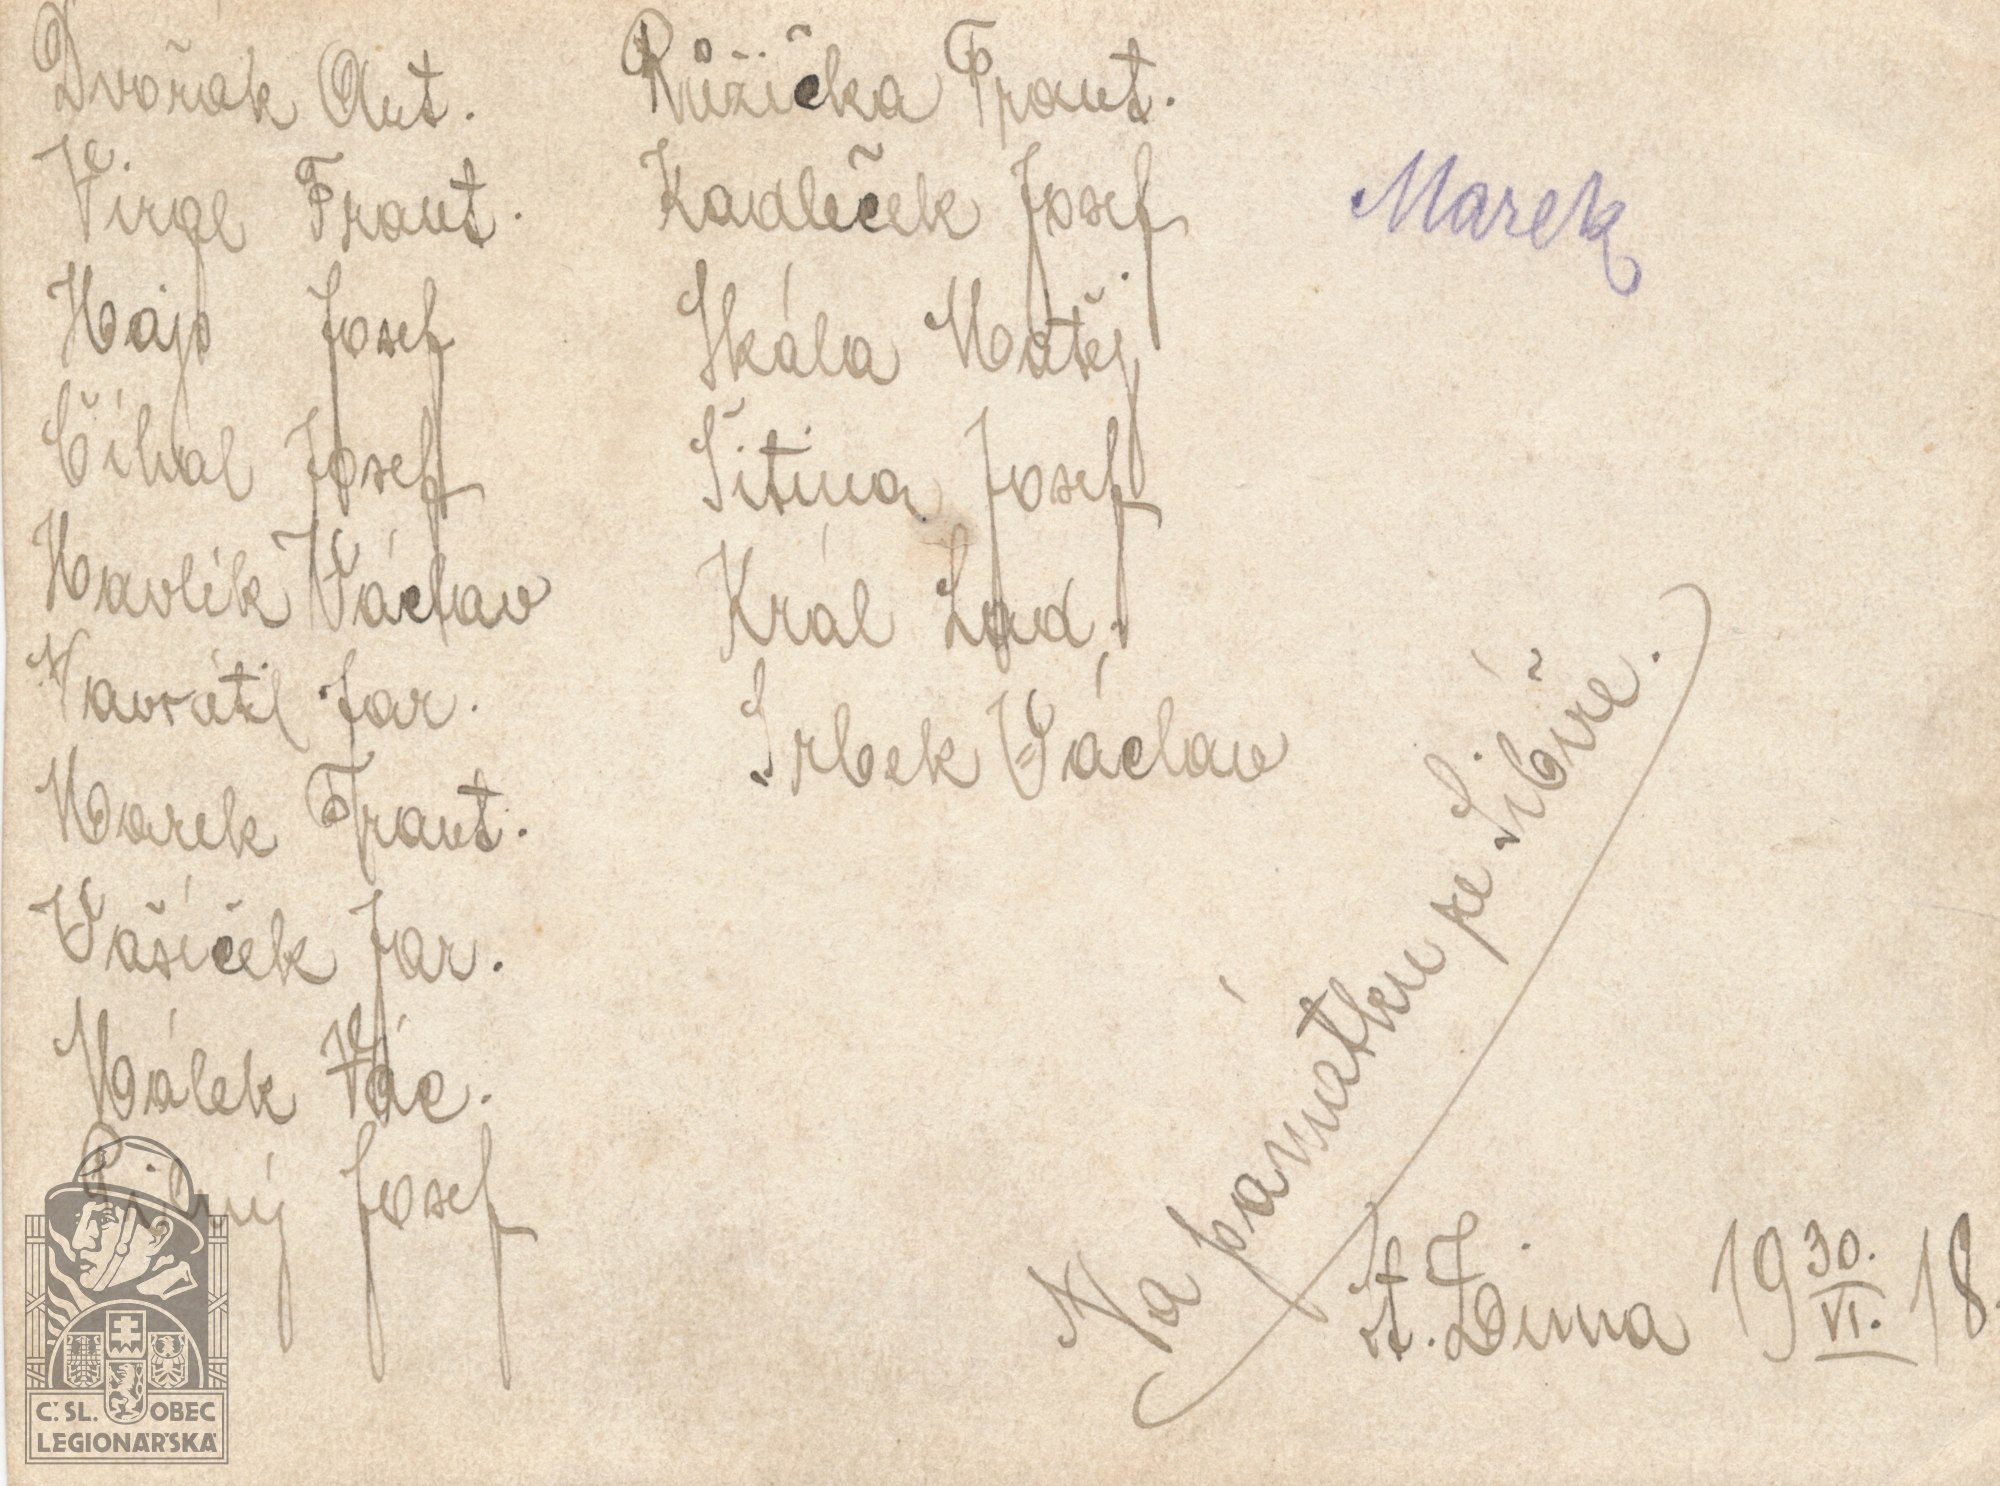 Dvořák Ant.
Virgl Frant.
Hájo Josef
Číhal Josef
Havlík Václav
Navrátil Jar.
Marek Frant.
Vašíček Jar.
Málek Vác.
Pilný Josef
Růžička Frant.
Kadleček Josef
Skála Matěj
Šitina Josef
Král Lad.
Srbek Václav
Marek
Na památku ze Sibíře.
St. Zima 19 30. VI. 18.
Č. SL. OBEC
LEGIONÁŘSKÁ